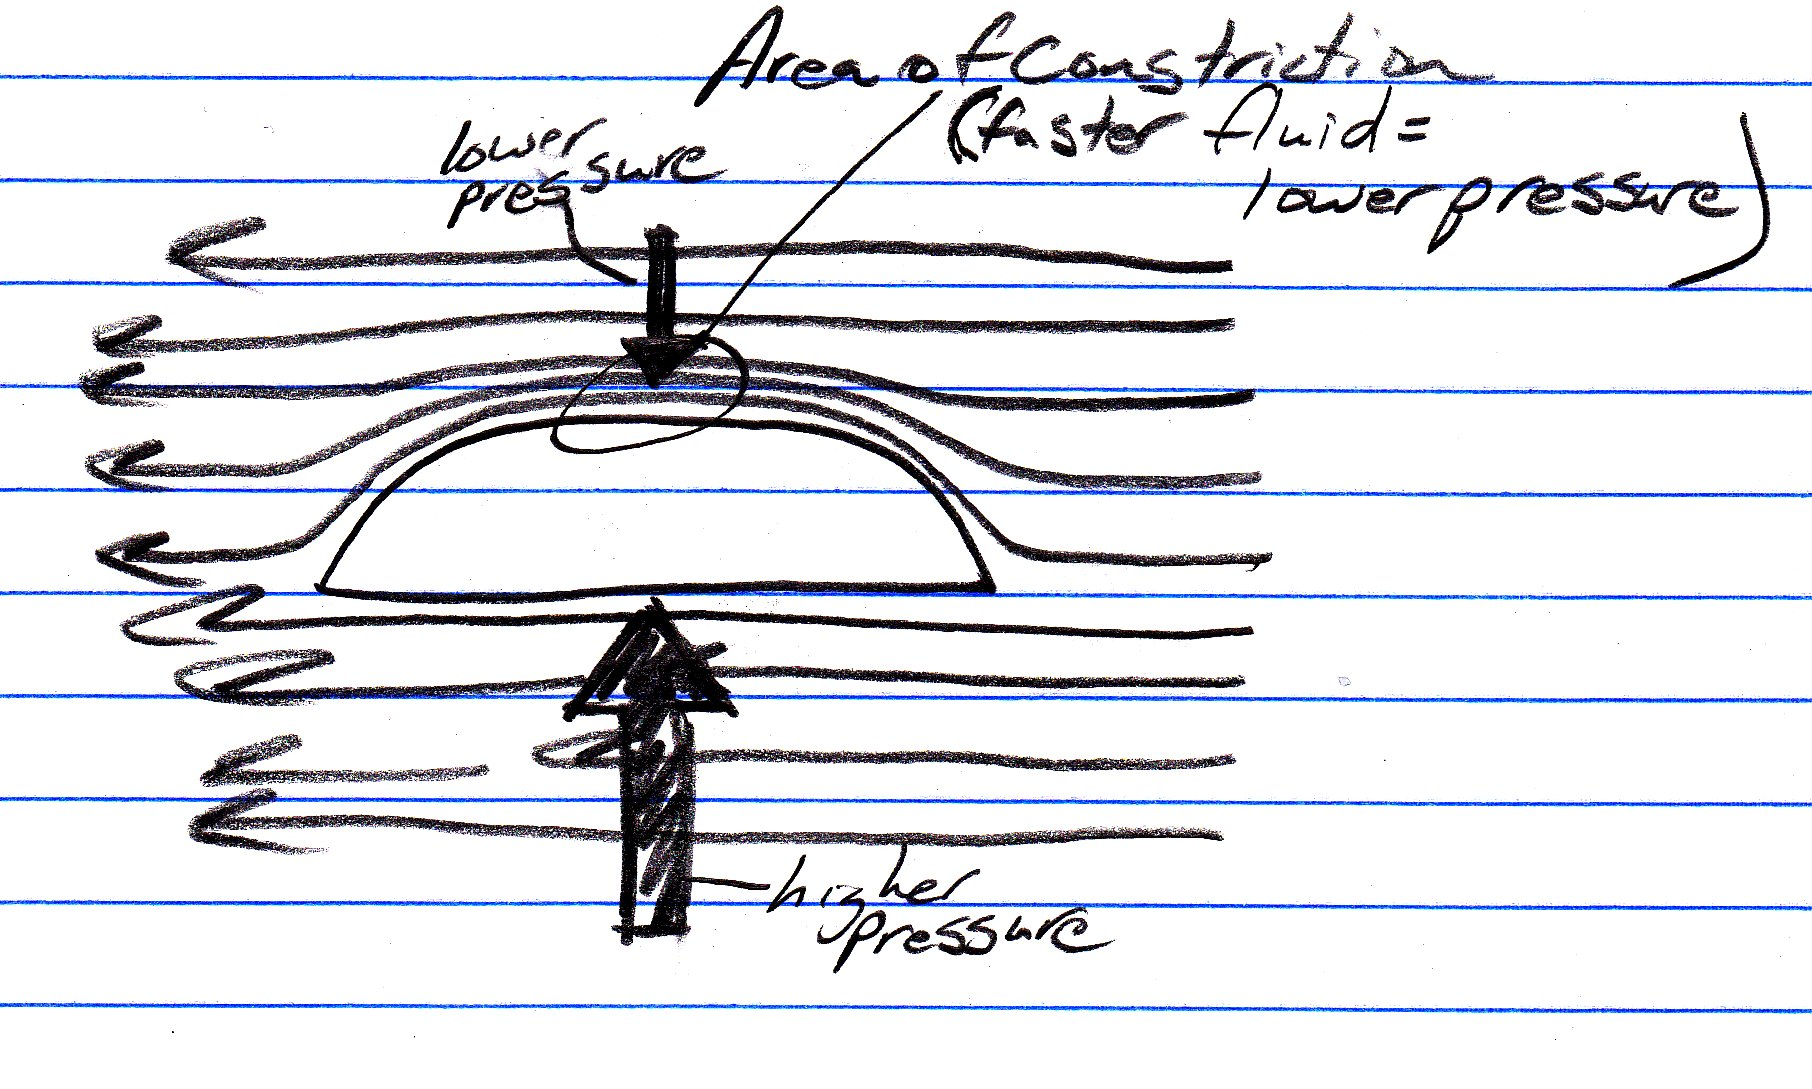 Area of Constriction
(faster fluid =
lower pressure)
lower
pressure
higher
pressure